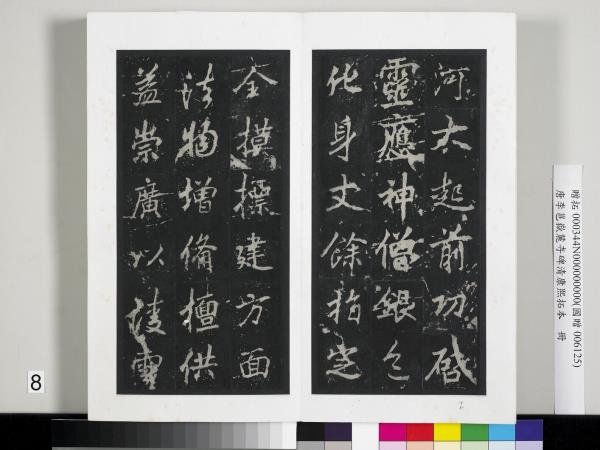 河大起前功啟
靈應神僧銀之
化身丈餘指定
全摸標建方面
法物增備檀供
益崇廣以淩雲
8
贈拓 000344N000000000(國贈 006125)
唐李邕嶽麓寺碑清康熙拓本 冊